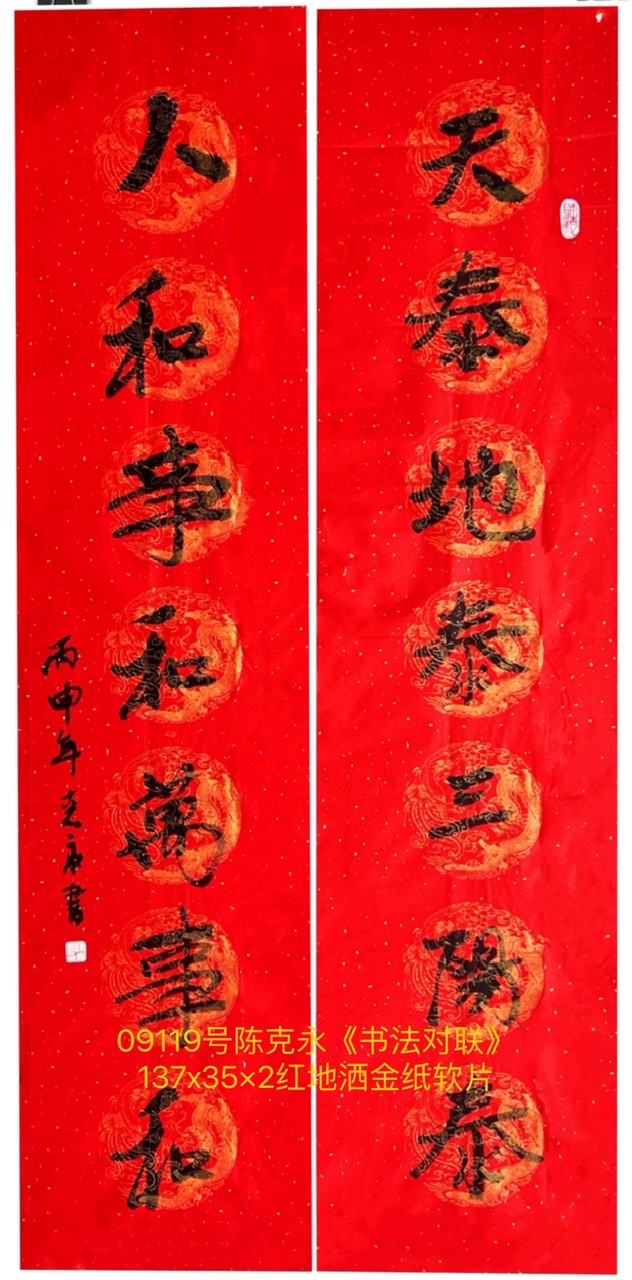 天泰地泰三陽泰
人和事和萬事和
丙申年克永書
09119号陈克永《书法对联》
137x35×2红地洒金纸软片